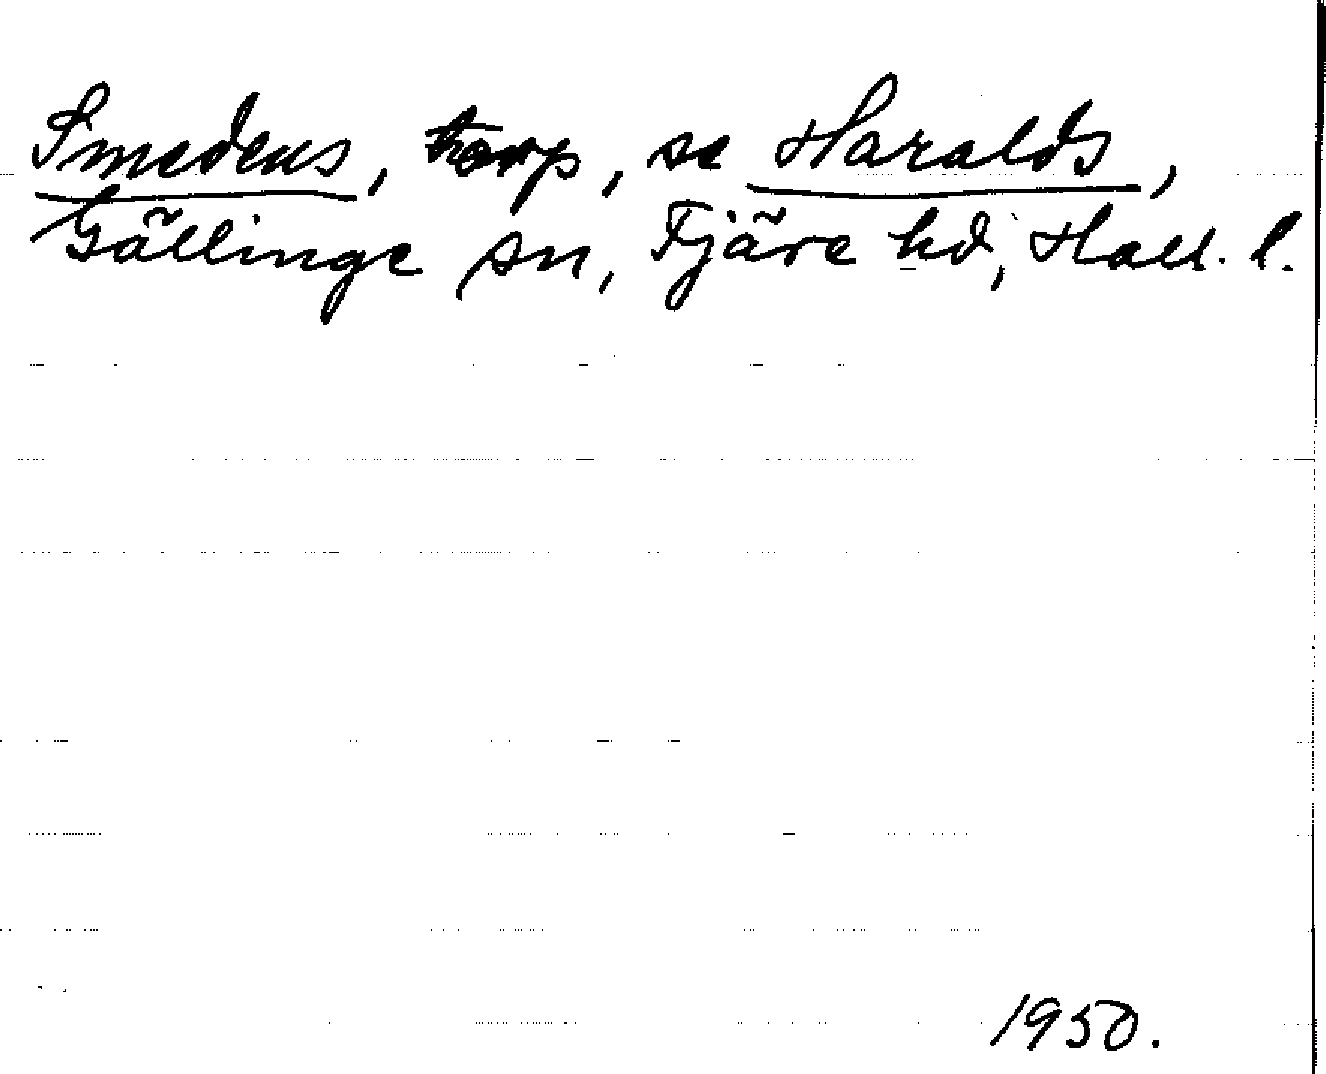 Smedens, torp, se Haralds,
Gällinge sn, Fjäre hd, Hall. l.
1950.